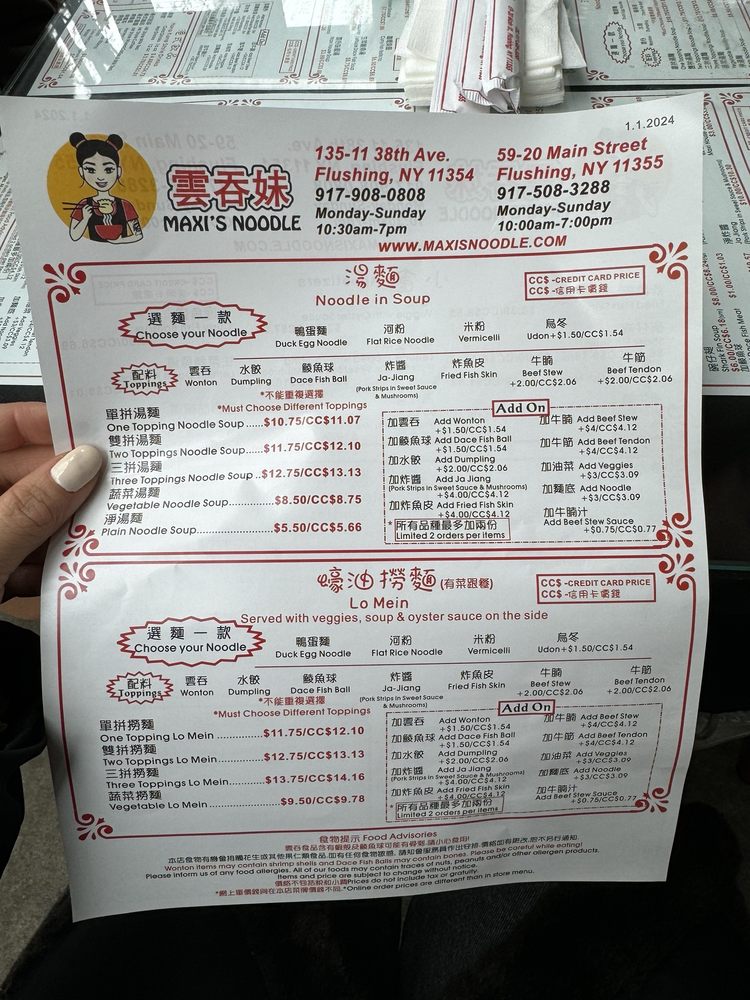 1.1.2024
雲吞妹
MAXI'S NOODLE
135-11 38th Ave.
Flushing, NY 11354
917-908-0808
Monday-Sunday
10:30am-7pm
59-20 Main Street
Flushing, NY 11355
917-508-3288
Monday-Sunday
10:00am-7:00pm
WWW.MAXISNOODLE.COM
湯麵
Noodle in Soup
CC$ -CREDIT CARD PRICE
CC$ -信用卡價錢
選麵一款
Choose your Noodle
鴨蛋麵 河粉 米粉 烏冬
Duck Egg Noodle Flat Rice Noodle Vermicelli Udon+$1.50/CC$1.54
配料
Toppings
雲吞 水餃 鯪魚球 炸醬 炸魚皮 牛腩 牛筋
Wonton Dumpling Dace Fish Ball Ja-Jiang Fried Fish Skin Beef Stew Beef Tendon
(Pork Strips in Sweet Sauce & Mushrooms) +2.00/CC$2.06 +$2.00/CC$2.06
*不能重複選擇
*Must Choose Different Toppings
單拼湯麵
One Topping Noodle Soup......$10.75/CC$11.07
雙拼湯麵
Two Toppings Noodle Soup....$11.75/CC$12.10
三拼湯麵
Three Toppings Noodle Soup ..$12.75/CC$13.13
蔬菜湯麵
Vegetable Noodle Soup............$8.50/CC$8.75
淨湯麵
Plain Noodle Soup...................$5.50/CC$5.66
Add On
加雲吞 Add Wonton
+$1.50/CC$1.54
加鯪魚球 Add Dace Fish Ball
+$1.50/CC$1.54
加水餃 Add Dumpling
+$2.00/CC$2.06
加炸醬 Add Ja Jiang
(Pork Strips in Sweet Sauce & Mushrooms)
+$4.00/CC$4.12
加炸魚皮 Add Fried Fish Skin
+$4.00/CC$4.12
*所有品種最多加兩份
Limited 2 orders per items
加牛腩 Add Beef Stew
+$4/CC$4.12
加牛筋 Add Beef Tendon
+$4/CC$4.12
加油菜 Add Veggies
+$3/CC$3.09
加麵底 Add Noodle
+$3/CC$3.09
加牛腩汁
Add Beef Stew Sauce
+$0.75/CC$0.77
蠔油撈麵(有菜跟餐)
Lo Mein
Served with veggies, soup & oyster sauce on the side
CC$ -CREDIT CARD PRICE
CC$ -信用卡價錢
選麵一款
Choose your Noodle
鴨蛋麵 河粉 米粉 烏冬
Duck Egg Noodle Flat Rice Noodle Vermicelli Udon+$1.50/CC$1.54
配料
Toppings
雲吞 水餃 鯪魚球 炸醬 炸魚皮 牛腩 牛筋
Wonton Dumpling Dace Fish Ball Ja-Jiang Fried Fish Skin Beef Stew Beef Tendon
(Pork Strips in Sweet Sauce & Mushrooms) +2.00/CC$2.06 +2.00/CC$2.06
*不能重複選擇
*Must Choose Different Toppings
單拼撈麵
One Topping Lo Mein................$11.75/CC$12.10
雙拼撈麵
Two Toppings Lo Mein.............$12.75/CC$13.13
三拼撈麵
Three Toppings Lo Mein...........$13.75/CC$14.16
蔬菜撈麵
Vegetable Lo Mein....................$9.50/CC$9.78
Add On
加雲吞 Add Wonton
+$1.50/CC$1.54
加鯪魚球 Add Dace Fish Ball
+$1.50/CC$1.54
加水餃 Add Dumpling
+$2.00/CC$2.06
加炸醬 Add Ja Jiang
(Pork Strips in Sweet Sauce & Mushrooms)
+$4.00/CC$4.12
加炸魚皮 Add Fried Fish Skin
+$4.00/CC$4.12
*所有品種最多加兩份
Limited 2 orders per items
加牛腩 Add Beef Stew
+$4/CC$4.12
加牛筋 Add Beef Tendon
+$4/CC$4.12
加油菜 Add Veggies
+$3/CC$3.09
加麵底 Add Noodle
+$3/CC$3.09
加牛腩汁
Add Beef Stew Sauce
+$0.75/CC$0.77
食物提示 Food Advisories
雲吞食品含有蝦殼及鯪魚球可能有骨刺,請小心食用!
Wonton items may contain shrimp shells and Dace Fish Balls may contain bones. Please be careful while eating!
Please inform us of any food allergies. All of our foods may contain traces of nuts, peanuts and/or other allergen products.
Items and price are subject to change without notice.
價格不包括稅和小費Prices do not include tax or gratuity.
*網上單價錢與在本店菜牌價錢不同.*Online order prices are different than in store menu.